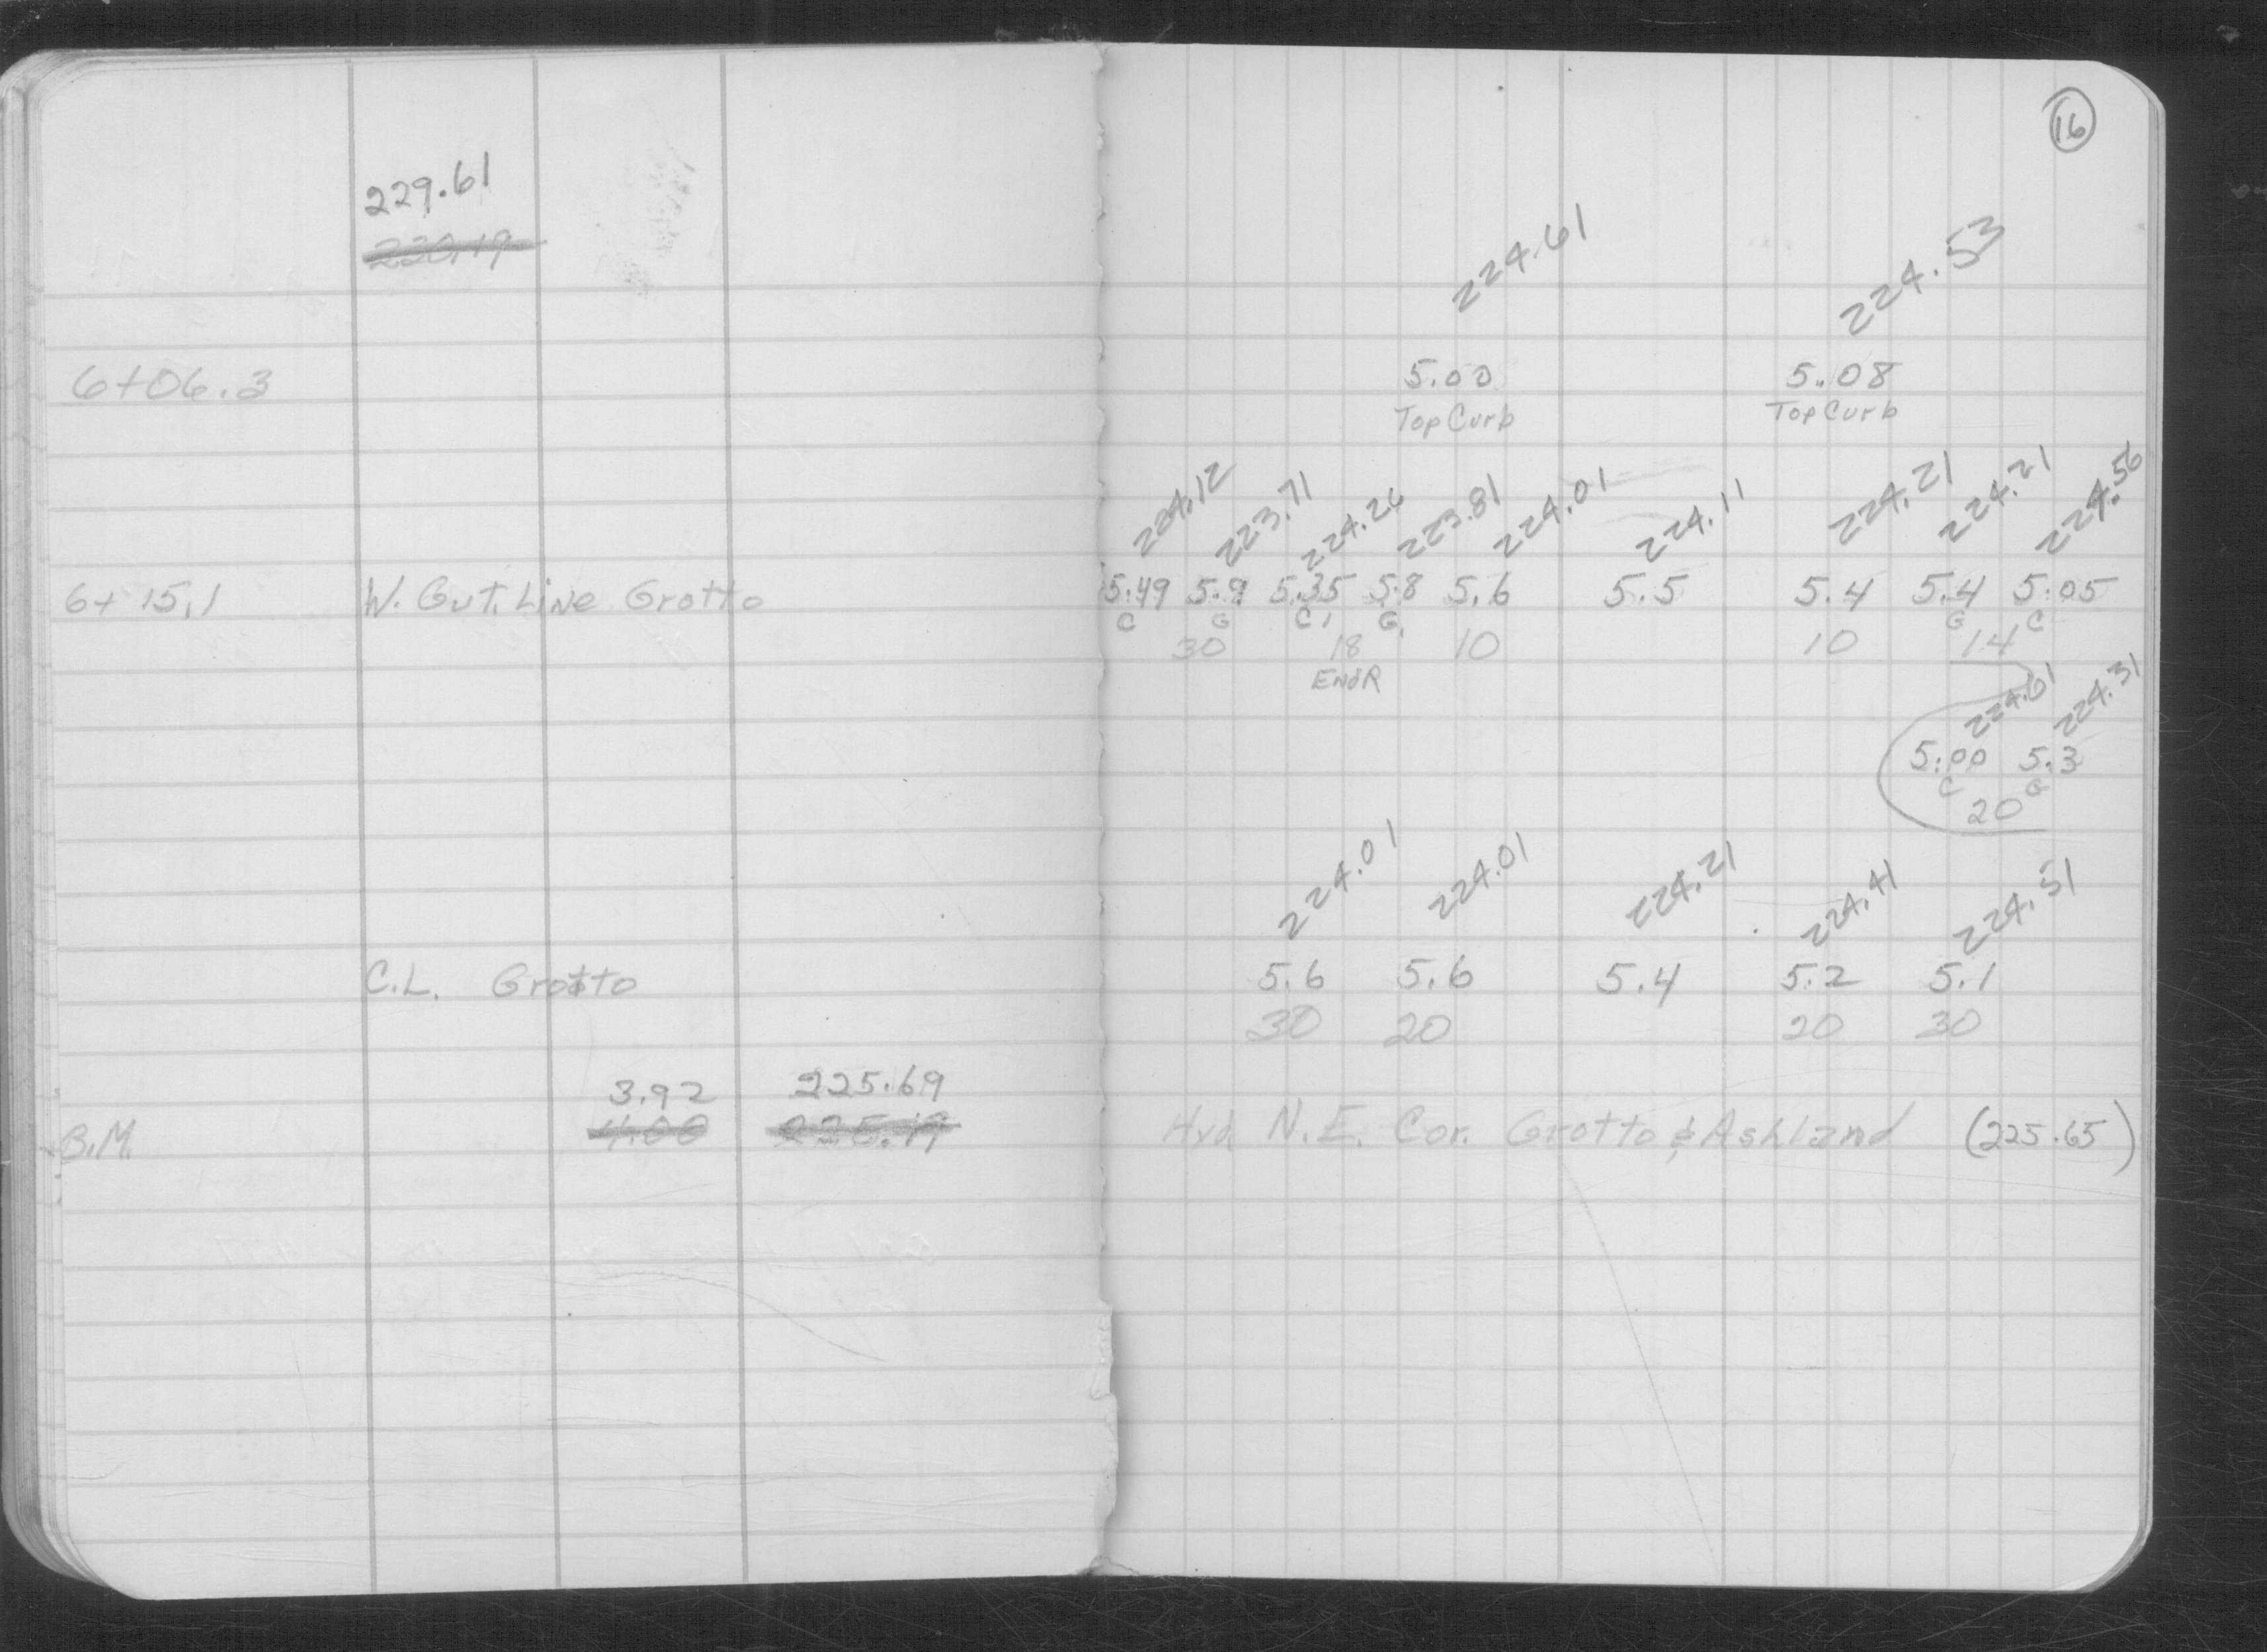 16
229.61
230.19
224.61 224.53
6+06.3 5.00 5.08
Top Curb Top Curb
224.12 223.71 224.26 223.81 224.01 224.11 224.21 224.21 224.56
6+15.1 W. Gut. Line Grotto 5.49 5.9 5.35 5.8 5.6 5.5 5.4 5.4 5.05
C G C G G C
30 18 10 10 14
End R
224.61 224.31
5.00 5.3
C G
20
224.01 224.01 224.21 224.41 224.51
C.L. Grotto 5.6 5.6 5.4 5.2 5.1
30 20 20 30
3.92 225.69
B.M. 4.00 Hyd N.E. Cor. Grotto & Ashland (225.65)